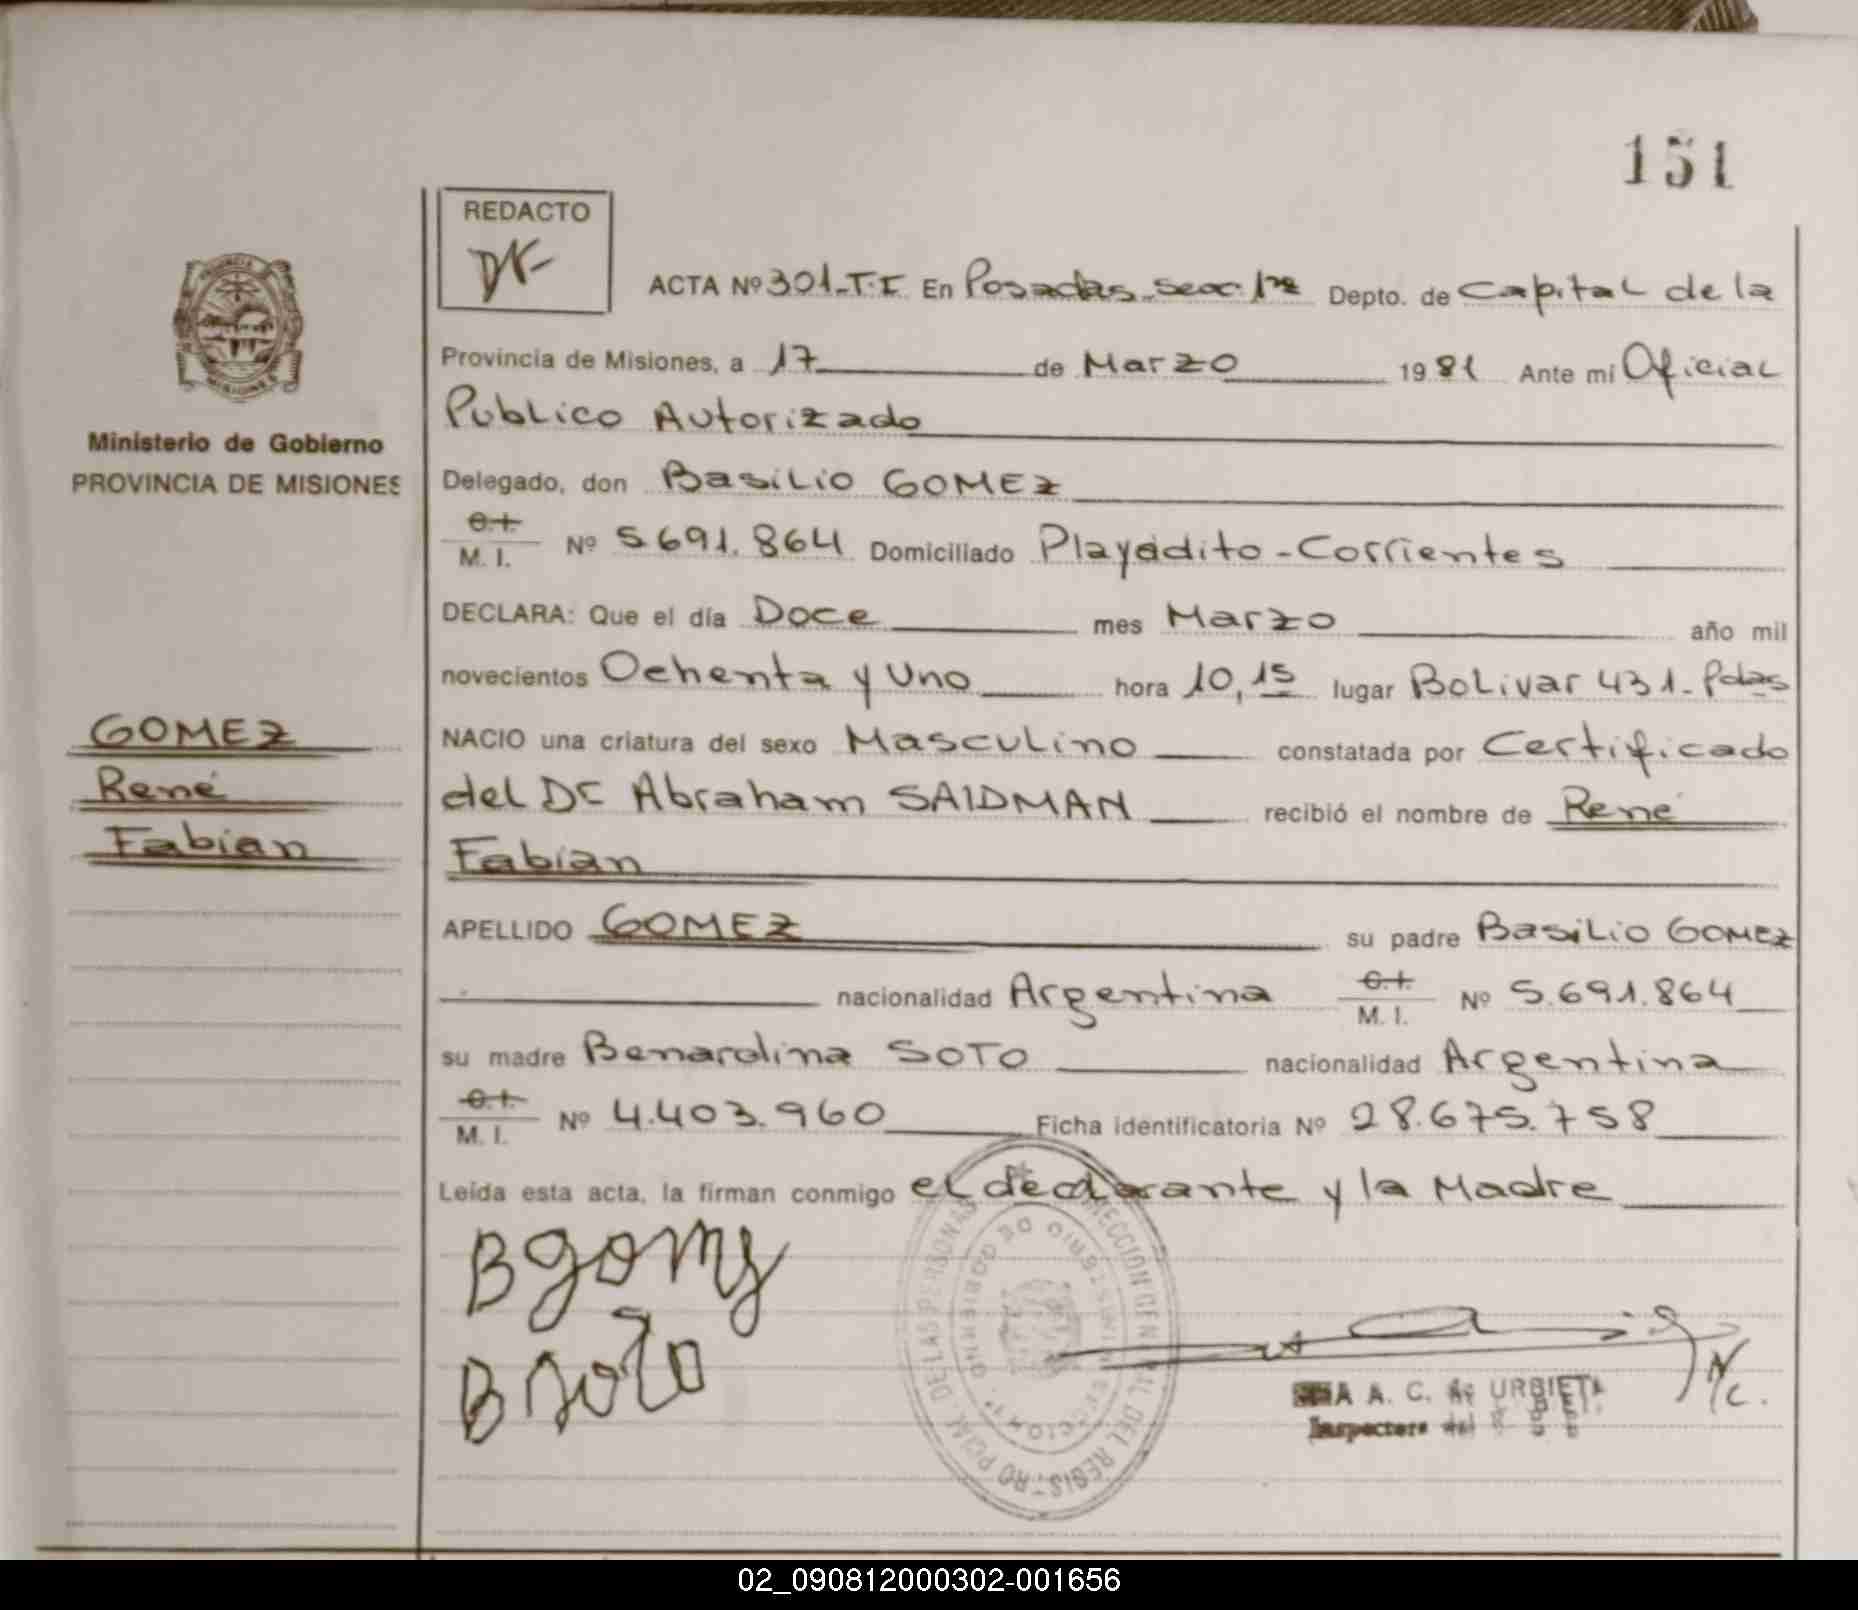 151
REDACTO
ACTA Nº 301-T.I En Posadas-secc. 1ra Depto. de Capital de la
Provincia de Misiones, a 17 de Marzo 1981 Ante mi Oficial
Publico Autorizado
Ministerio de Gobierno
PROVINCIA DE MISIONES
Delegado, don Basilio GOMEZ
C.I. M. I. Nº 5691.864 Domiciliado Playadito-Corrientes
DECLARA: Que el día Doce mes Marzo año mil
novecientos Ochenta y Uno hora 10,15 lugar Bolivar 431-Pdas
GOMEZ
René
Fabian
NACIO una criatura del sexo Masculino constatada por Certificado
del Dr Abraham SAIDMAN recibió el nombre de René
Fabian
APELLIDO GOMEZ su padre Basilio GOMEZ
nacionalidad Argentina C.I. M. I. Nº 5.691.864
su madre Benardina SOTO nacionalidad Argentina
C.I. M. I. Nº 4.403.960 Ficha identificatoria Nº 28.675.758
Leída esta acta, la firman conmigo el declarante y la Madre
BGomez
BSoto
DIRECCION GENERAL DEL REGISTRO PCIAL. DE LAS PERSONAS
MINISTERIO DE GOBIERNO
A. C. de URBIETA
Inspectora del
02_090812000302-001656